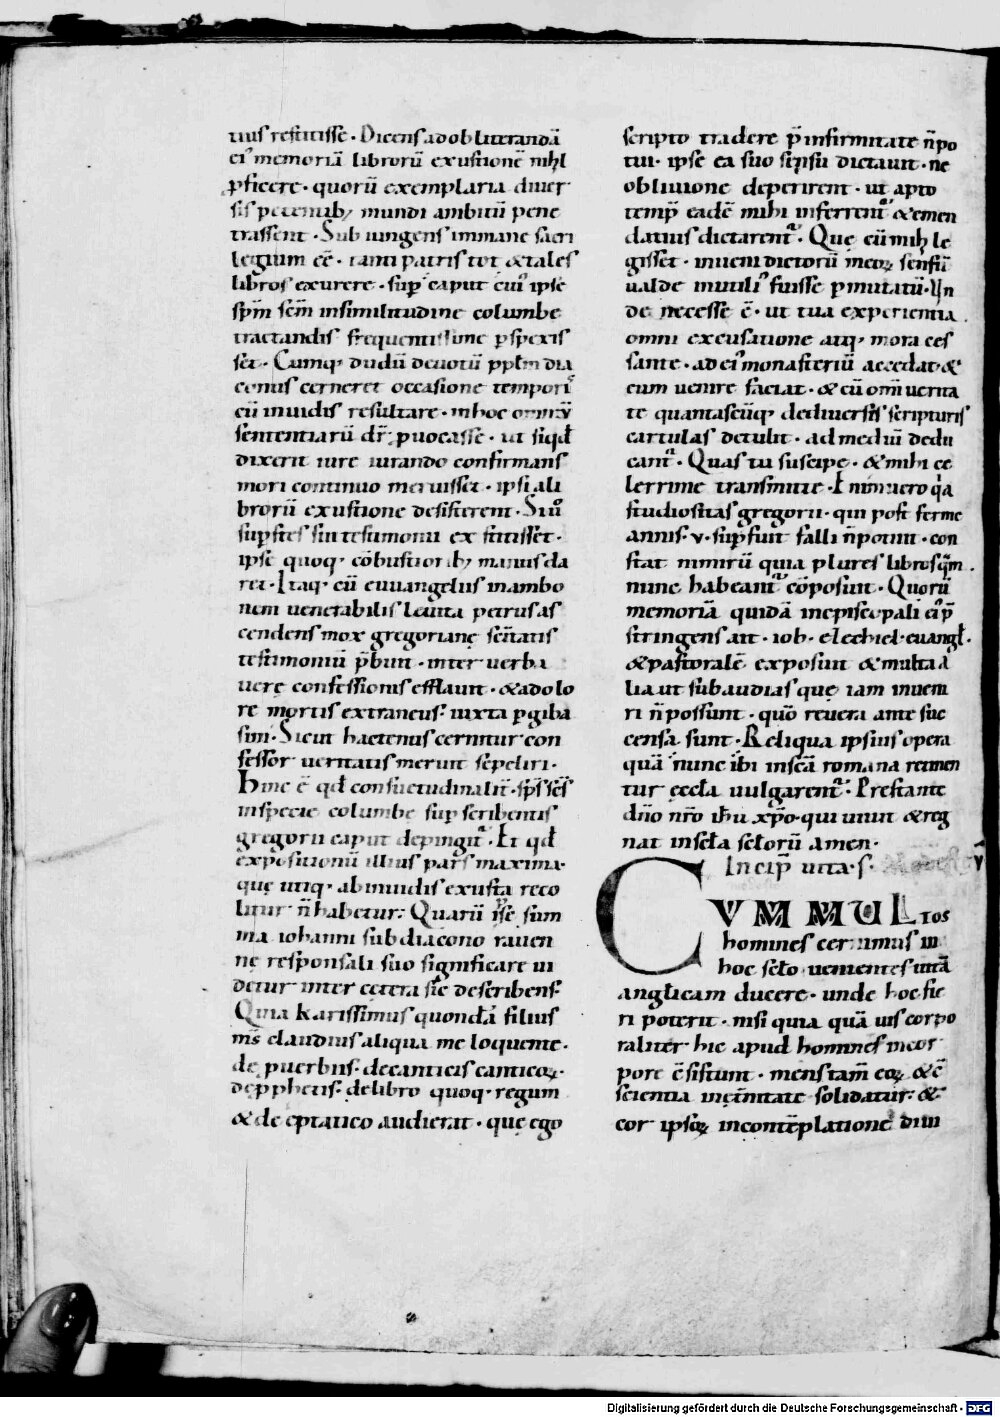 tius restitisse · Dicens ad obliterandã
ei᷒ memoriã librorũ exustionẽ nihil
ꝓficere · quorũ exemplaria diuer
sis petentib; mundi ambitũ pene
trassent · Subiungens immane sacri
legium eẽ · tanti patris tot & tales
libros exurere · suꝑ caput cui᷒ ipse
spm̃ scm̃ insimilitudine columbe
tractandis frequentissime ꝑspexis
set · Cumq; dudũ deuotũ ppl̃m dia
conus cerneret occasione temporis
cũ inuidis resultare · inhoc omniũ
sententiarũ dr̃ ꝓuocasse · ut siqđ
dixerit iure iurando confirmans
mori continuo meruisset · ipsi ali
brorũ exustione desisterent · Sin᷒
suꝑstes sui testimonii extitisset ·
ipse quoq; cõbustiorib; manus da
ret · Itaq; cũ euuangelus inambo
nem uenerabilis leuita petrus as
cendens mox gregoriane scñatis
testimoniũ p̃buit · inter uerba
uere confessionis efflauit · & adolo
re mortis extraneus · iuxta ꝑgiba
sim · Sicut hactenus cernitur con
fessor ueritatis meruit sepeliri ·
Hinc ẽ qđ consuetudinalit̃ · sps̃ scs̃
inspecie columbe suꝑ scribentis
gregorii caput depingit᷒ · Et qđ
expositionũ illius pars maxima ·
que utiq; abinuidis exusta reco
litur ñ habetur · Quarũ ipse sum
ma iohanni subdiacono rauen
ne responsali suo significare ui
detur inter cetera sic describens ·
Quia karissimus quondã filius
ms̃ claudius aliqua me loquente ·
de puerbiis · decanticis canticoꝝ ·
de pphetis · delibro quoq; regum
& de eptatico audierat · que ego
scripto tradere p̃ infirmitate ñ po
tui · ipse ea suo sensu dictauit · ne
obliuione deperirent · ut apto
temꝑ eadẽ mihi inferrent᷒ & emen
datius dictarent᷒ · Que cũ mihi le
gisset · inueni dictorũ meoꝝ sensũ
ualde inutili᷒ fuisse ꝑmutatũ · Un
de necesse ẽ · ut tua experientia
omni excusatione atq; mora ces
sante · ad ei᷒ monasteriũ accedat · &
eum uenire faciat · & cũ omi uerita
te quantascũq; dediuersis scripturis
cartulas detulit · ad mediũ dedu
cant᷒ · Quas tu suscipe · & mihi ce
lerrime transmitte · Enimuero q̃a
studiositas gregorii · qui post ferme
annis · v · suꝑfuit falli ñ potuit · con
stat nimirũ quia plures libros quã
nunc habeant᷒ cõposuit · Quorũ
memoriã quidã inepiscopali ei᷒ p̃
stringens ait · iob · ezechiel · euangł ·
& pastoralẽ exposuit & multa a
lia ut subaudias que iam inueni
ri ñ possunt · quõ reuera ante suc
censa sunt · Reliqua ipsius opera
quã nunc ibi inscã romana retinen
tur eccła uulgarent᷒ · Prestante
dño nr̃o ihu xp̃o · qui uiuit & reg
nat insecła scłorũ amen ·
Incip̃ uita · s ·
CVM MVL TOS
homines cernimus in
hoc scło uenientes uitã
angłicam ducere · unde hoc fie
ri poterit · nisi quia quã uis corpo
raliter hic apud homines incor
pore c̃sistunt · mens tam̃ eoꝝ & c̃
scientia incẽnitate solidatur · &
cor ipsoꝝ incontẽplatione diui
Digitalisierung gefördert durch die Deutsche Forschungsgemeinschaft - DFG